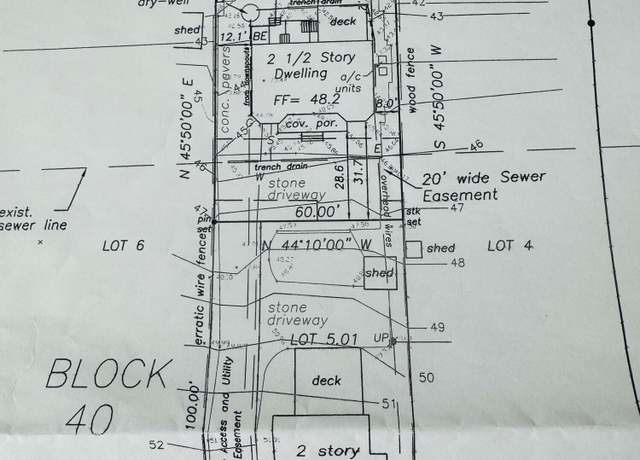 dry-well
trench drain
deck
42
43
shed
43
12.1'
BE
2 1/2 Story
Dwelling
a/c
units
FF= 48.2
8.0'
cov. por.
conc. pavers
wood fence
N 45°50'00" E
S 45°50'00" W
45
45
S
E
46
46
trench drain
W
stone
driveway
28.6
31.7
overhead wires
20' wide Sewer
Easement
exist.
sewer line
47
pin
set
60.00'
stk
set
47
LOT 6
N 44°10'00" W
shed
shed
LOT 4
48
erratic wire fence
stone
driveway
49
LOT 5.01
UP
BLOCK
40
deck
50
100.00'
Access and Utility
Easement
51
52
2 story